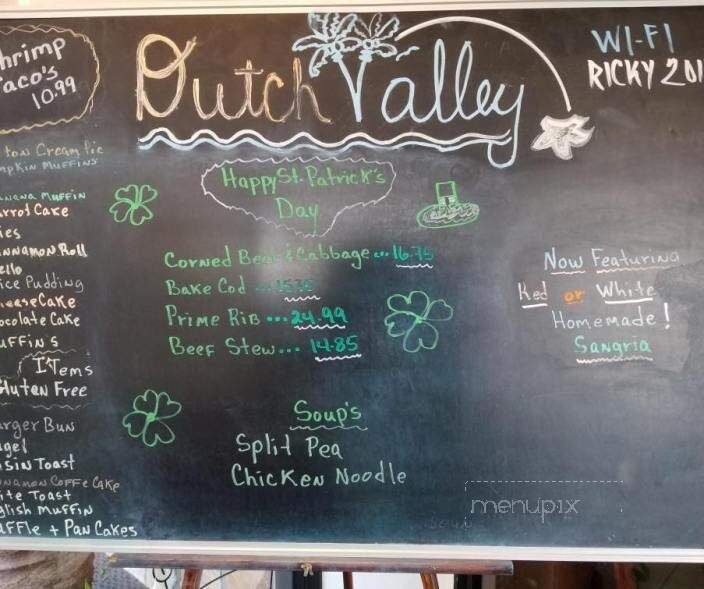 Shrimp
Taco's
10.99
Dutch Valley
WI-FI
RICKY 201
ton Cream Pie
mpkin Muffins
anana Muffin
arrot Cake
ies
innamon Roll
ello
ice Pudding
heeseCake
ocolate Cake
uffins
ITems
Gluten Free
urger Bun
agel
isin Toast
nnamon Coffe Cake
ite Toast
glish Muffin
affle + Pan Cakes
Happy St. Patrick's
Day
Corned Beef & Cabbage ... 16.75
Bake Cod ...
Prime Rib ... 24.99
Beef Stew ... 14.85
Soup's
Split Pea
Chicken Noodle
Now Featuring
Red or White
Homemade!
Sangria
menupix